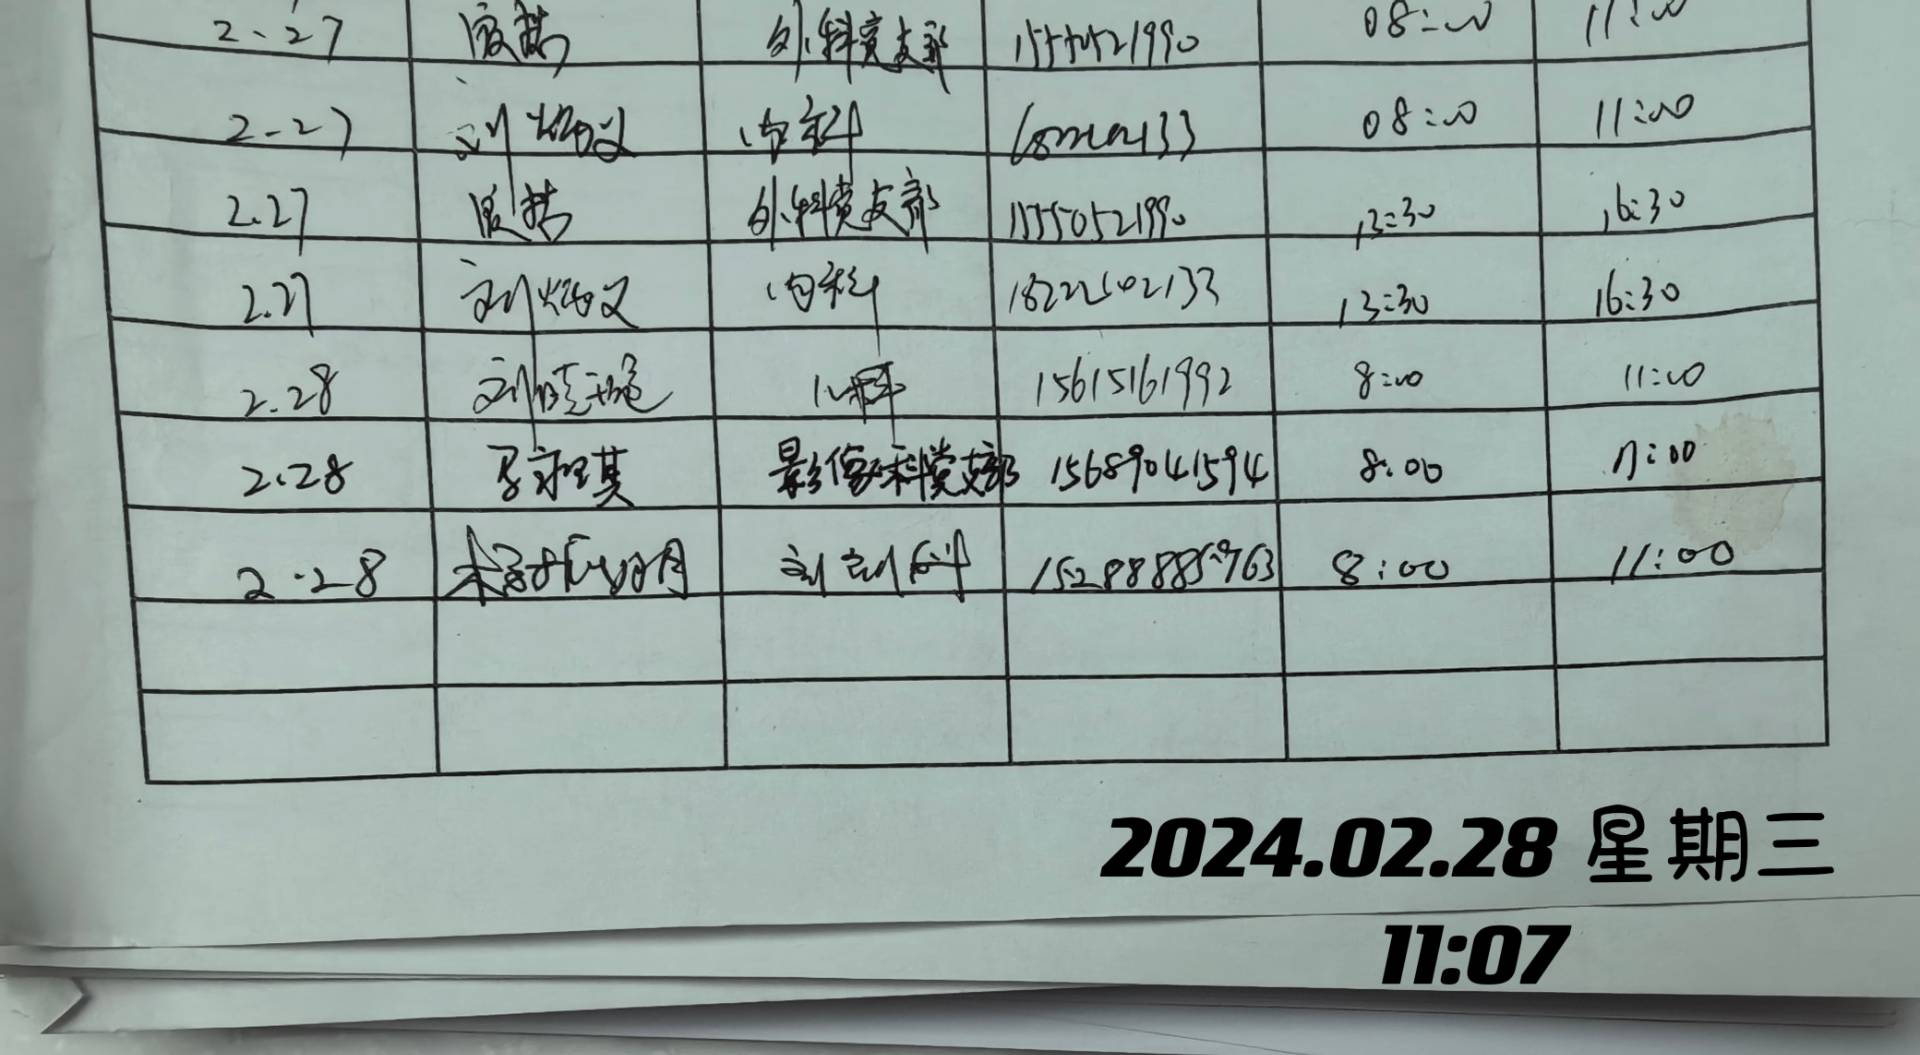 2.27 外科党支部 15550521990 08:00 11:00
2-27 刘炳义 内科 08:00 11:00
2.27 外科党支部 15550521990 13:30 16:30
2.27 刘炳义 内科 18222502133 13:30 16:30
2.28 刘晓琬 儿科 15615161992 8:00 11:00
2.28 影像科党支部 15689041594 8:00 11:00
2.28 8:00 11:00
2024.02.28 星期三
11:07